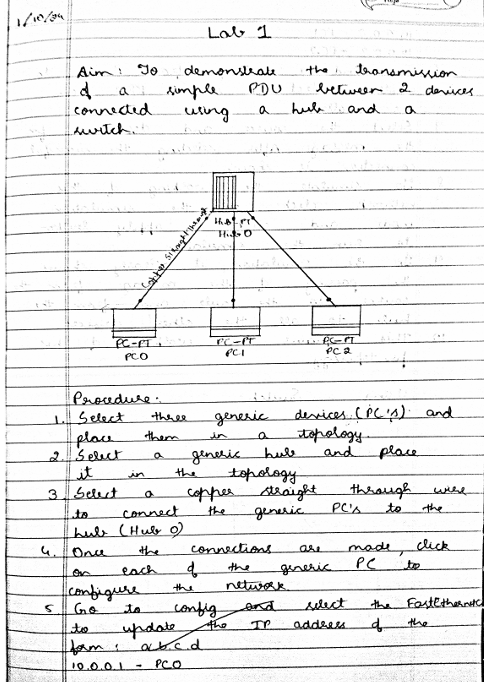 1/10/24
Lab 1
Aim: To demonstrate the transmission
of a simple PDU between 2 devices
connected using a hub and a
switch.
Hub-PT
Hub 0
Copper straight through
PC-PT
PC0
PC-PT
PC1
PC-PT
PC2
Procedure:
1. Select three generic devices (PC's) and
place them in a topology.
2. Select a generic hub and place
it in the topology
3 Select a copper straight through wire
to connect the generic PC's to the
hub (Hub 0)
4. Once the connections are made, click
on each of the generic PC to
configure the network
5 Go to config and select the FastEthernet0
to update the IP address of the
form: a.b.c.d
10.0.0.1 - PC0